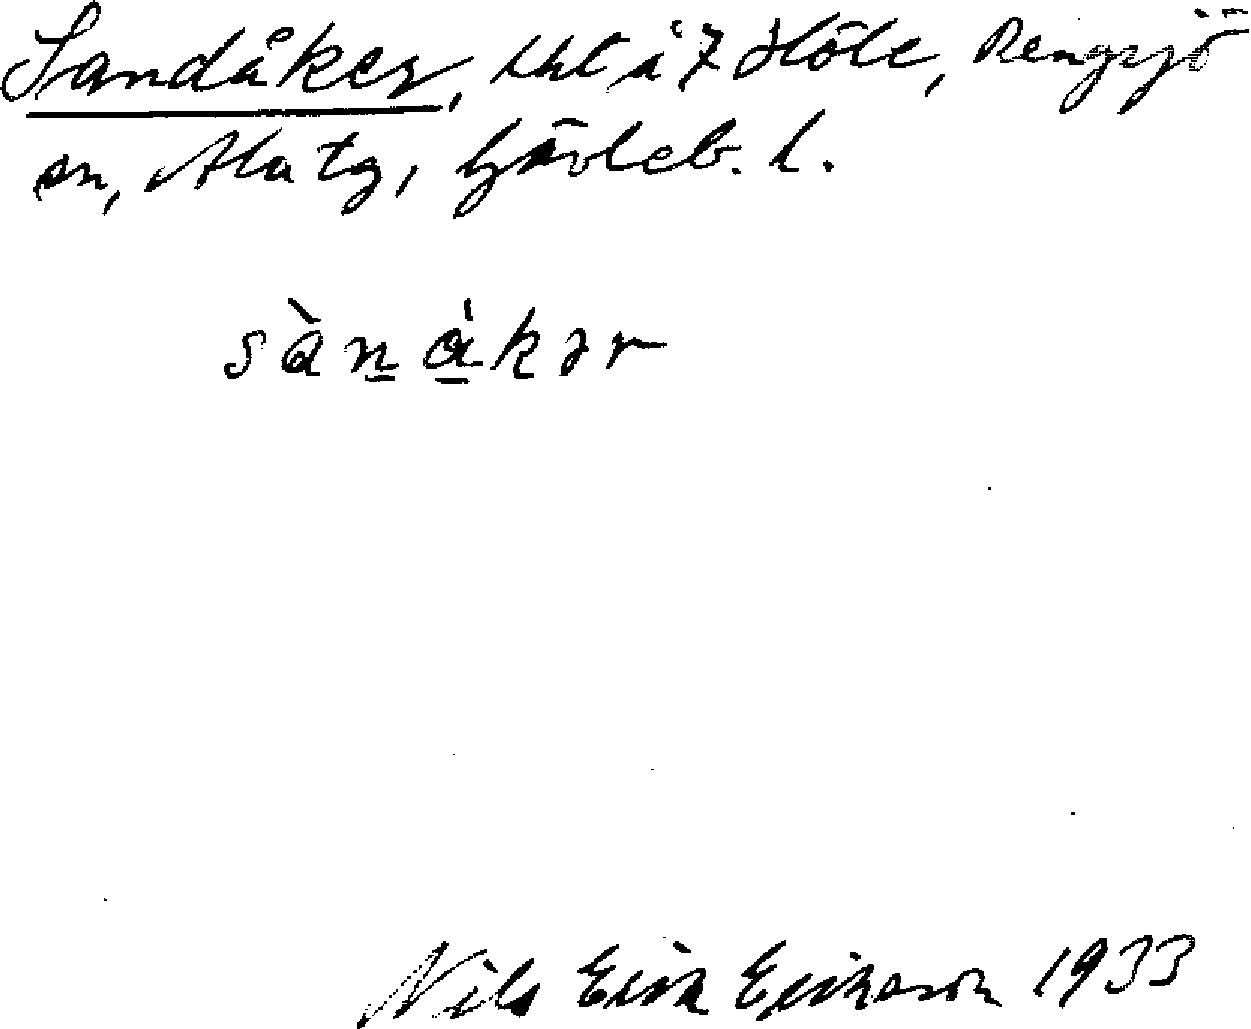 Sandåker, lht å 7 Höle, Rengsjö
sn, Ala tg, Gävleb. l.
sànàkər
Nils Erik Erikson 1933